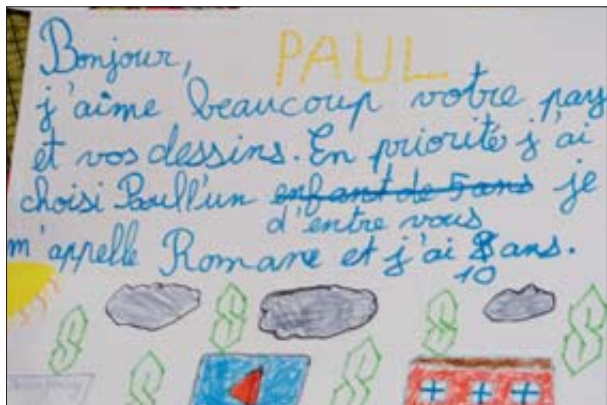 PAUL
Bonjour,
j'aime beaucoup votre pays
et vos dessins. En priorité j'ai
choisi Paul l'un enfant de 5 ans je
d'entre vous
m'appelle Romane et j'ai 8 ans.
10